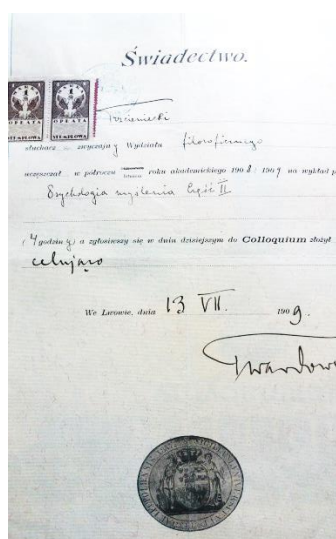 Świadectwo.
OPŁATA OPŁATA
STEMPLOWA STEMPLOWA
słuchacz zwyczajny Wydziału filozoficznego
uczęszczał w półroczu letniem roku akademickiego 1908/1909 na wykład p
Psychologia myślenia Część II
(4 godziny) a zgłosiwszy się w dniu dzisiejszym do Colloquium złożył
celująco
We Lwowie, dnia 13 VII. 1909.
Twardow